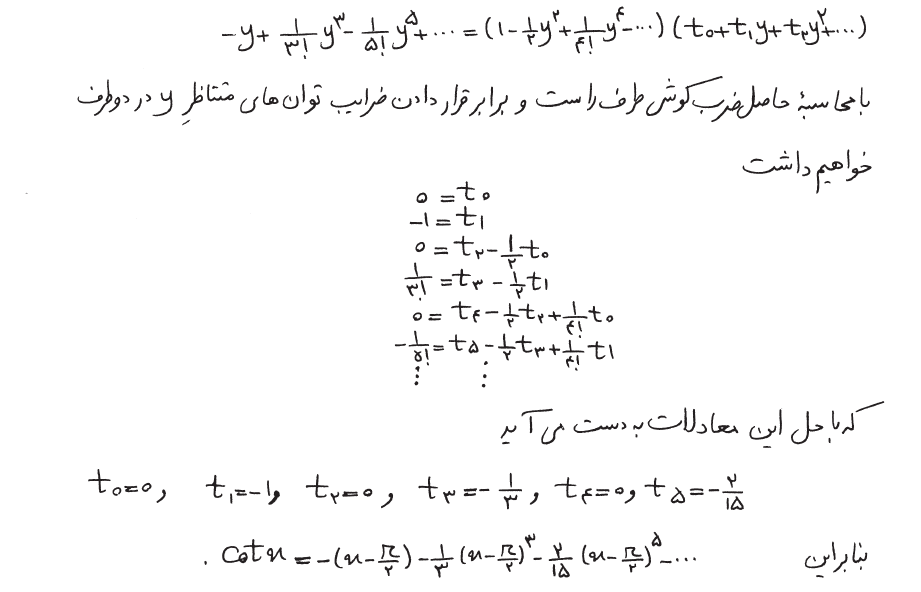 -y + \frac{۱}{۳!} y^۳ - \frac{۱}{۵!} y^۵ + ... = (۱ - \frac{۱}{۲} y^۲ + \frac{۱}{۴!} y^۴ - ...) (t_۰ + t_۱ y + t_۲ y^۲ + ...)
با محاسبهٔ حاصل‌ضرب کوشی طرف راست و برابر قرار دادن ضرایب توان های متناظرِ y در دو طرف
خواهیم داشت
۰ = t_۰
-۱ = t_۱
۰ = t_۲ - \frac{۱}{۲} t_۰
\frac{۱}{۳!} = t_۳ - \frac{۱}{۲} t_۱
۰ = t_۴ - \frac{۱}{۲} t_۲ + \frac{۱}{۴!} t_۰
-\frac{۱}{۵!} = t_۵ - \frac{۱}{۲} t_۳ + \frac{۱}{۴!} t_۱
⋮ ⋮
که با حل این معادلات به دست می آید
t_۰ = ۰ , t_۱ = -۱ , t_۲ = ۰ , t_۳ = -\frac{۱}{۳} , t_۴ = ۰ , t_۵ = -\frac{۲}{۱۵}
بنابراین cot x = -(x - \frac{π}{۲}) - \frac{۱}{۳} (x - \frac{π}{۲})^۳ - \frac{۲}{۱۵} (x - \frac{π}{۲})^۵ - ... .